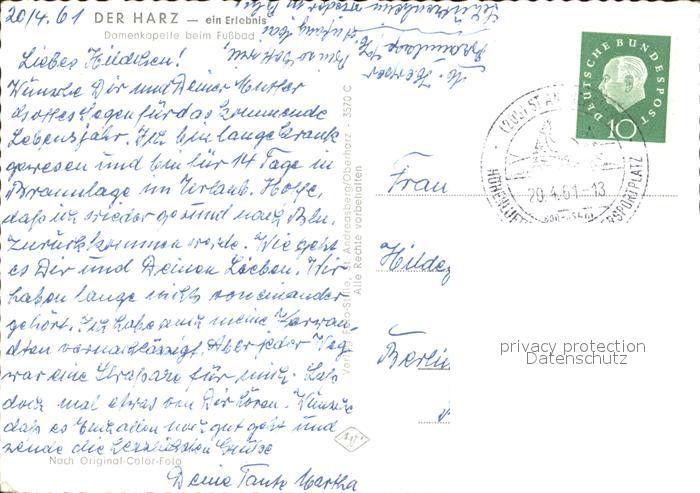 20/4.61 DER HARZ — ein Erlebnis
Damenkapelle beim Fußbad
Liebes Hildchen!
Wünsche Dir und Deiner Mutter
Gottes Segen für das kommende
Lebensjahr. Ich bin lange krank
gewesen und bin für 14 Tage in
Braunlage im Urlaub. Hoffe,
daß ich wieder gesund nach Bln.
zurückkommen werde. Wie geht
es Dir und Deinen Lieben. Wir
haben lange nichts voneinander
gehört. Ich habe auch meine Verwan-
dten vernachlässigt. Aber jeder Weg
war eine Strapaze für mich. Laß
doch mal etwas von Dir hören. Wünsche
daß es Euch allen noch gut geht und
sende die herzlichsten Grüße
Deine Tante Martha
Nach Original-Color-Foto
St. Andreasberg/Oberharz 3570 C
Alle Rechte vorbehalten
DEUTSCHE BUNDESPOST
10
20.4.61-13
Frau
Hildeg
Berlin
privacy protection
Datenschutz